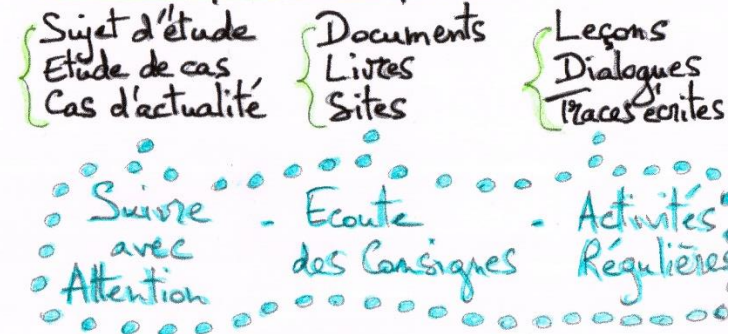 Sujet d'étude
Etude de cas
Cas d'actualité
Documents
Livres
Sites
Leçons
Dialogues
Traces écrites
Suivre
avec
Attention
- Ecoute
des Consignes
- Activités
Régulières